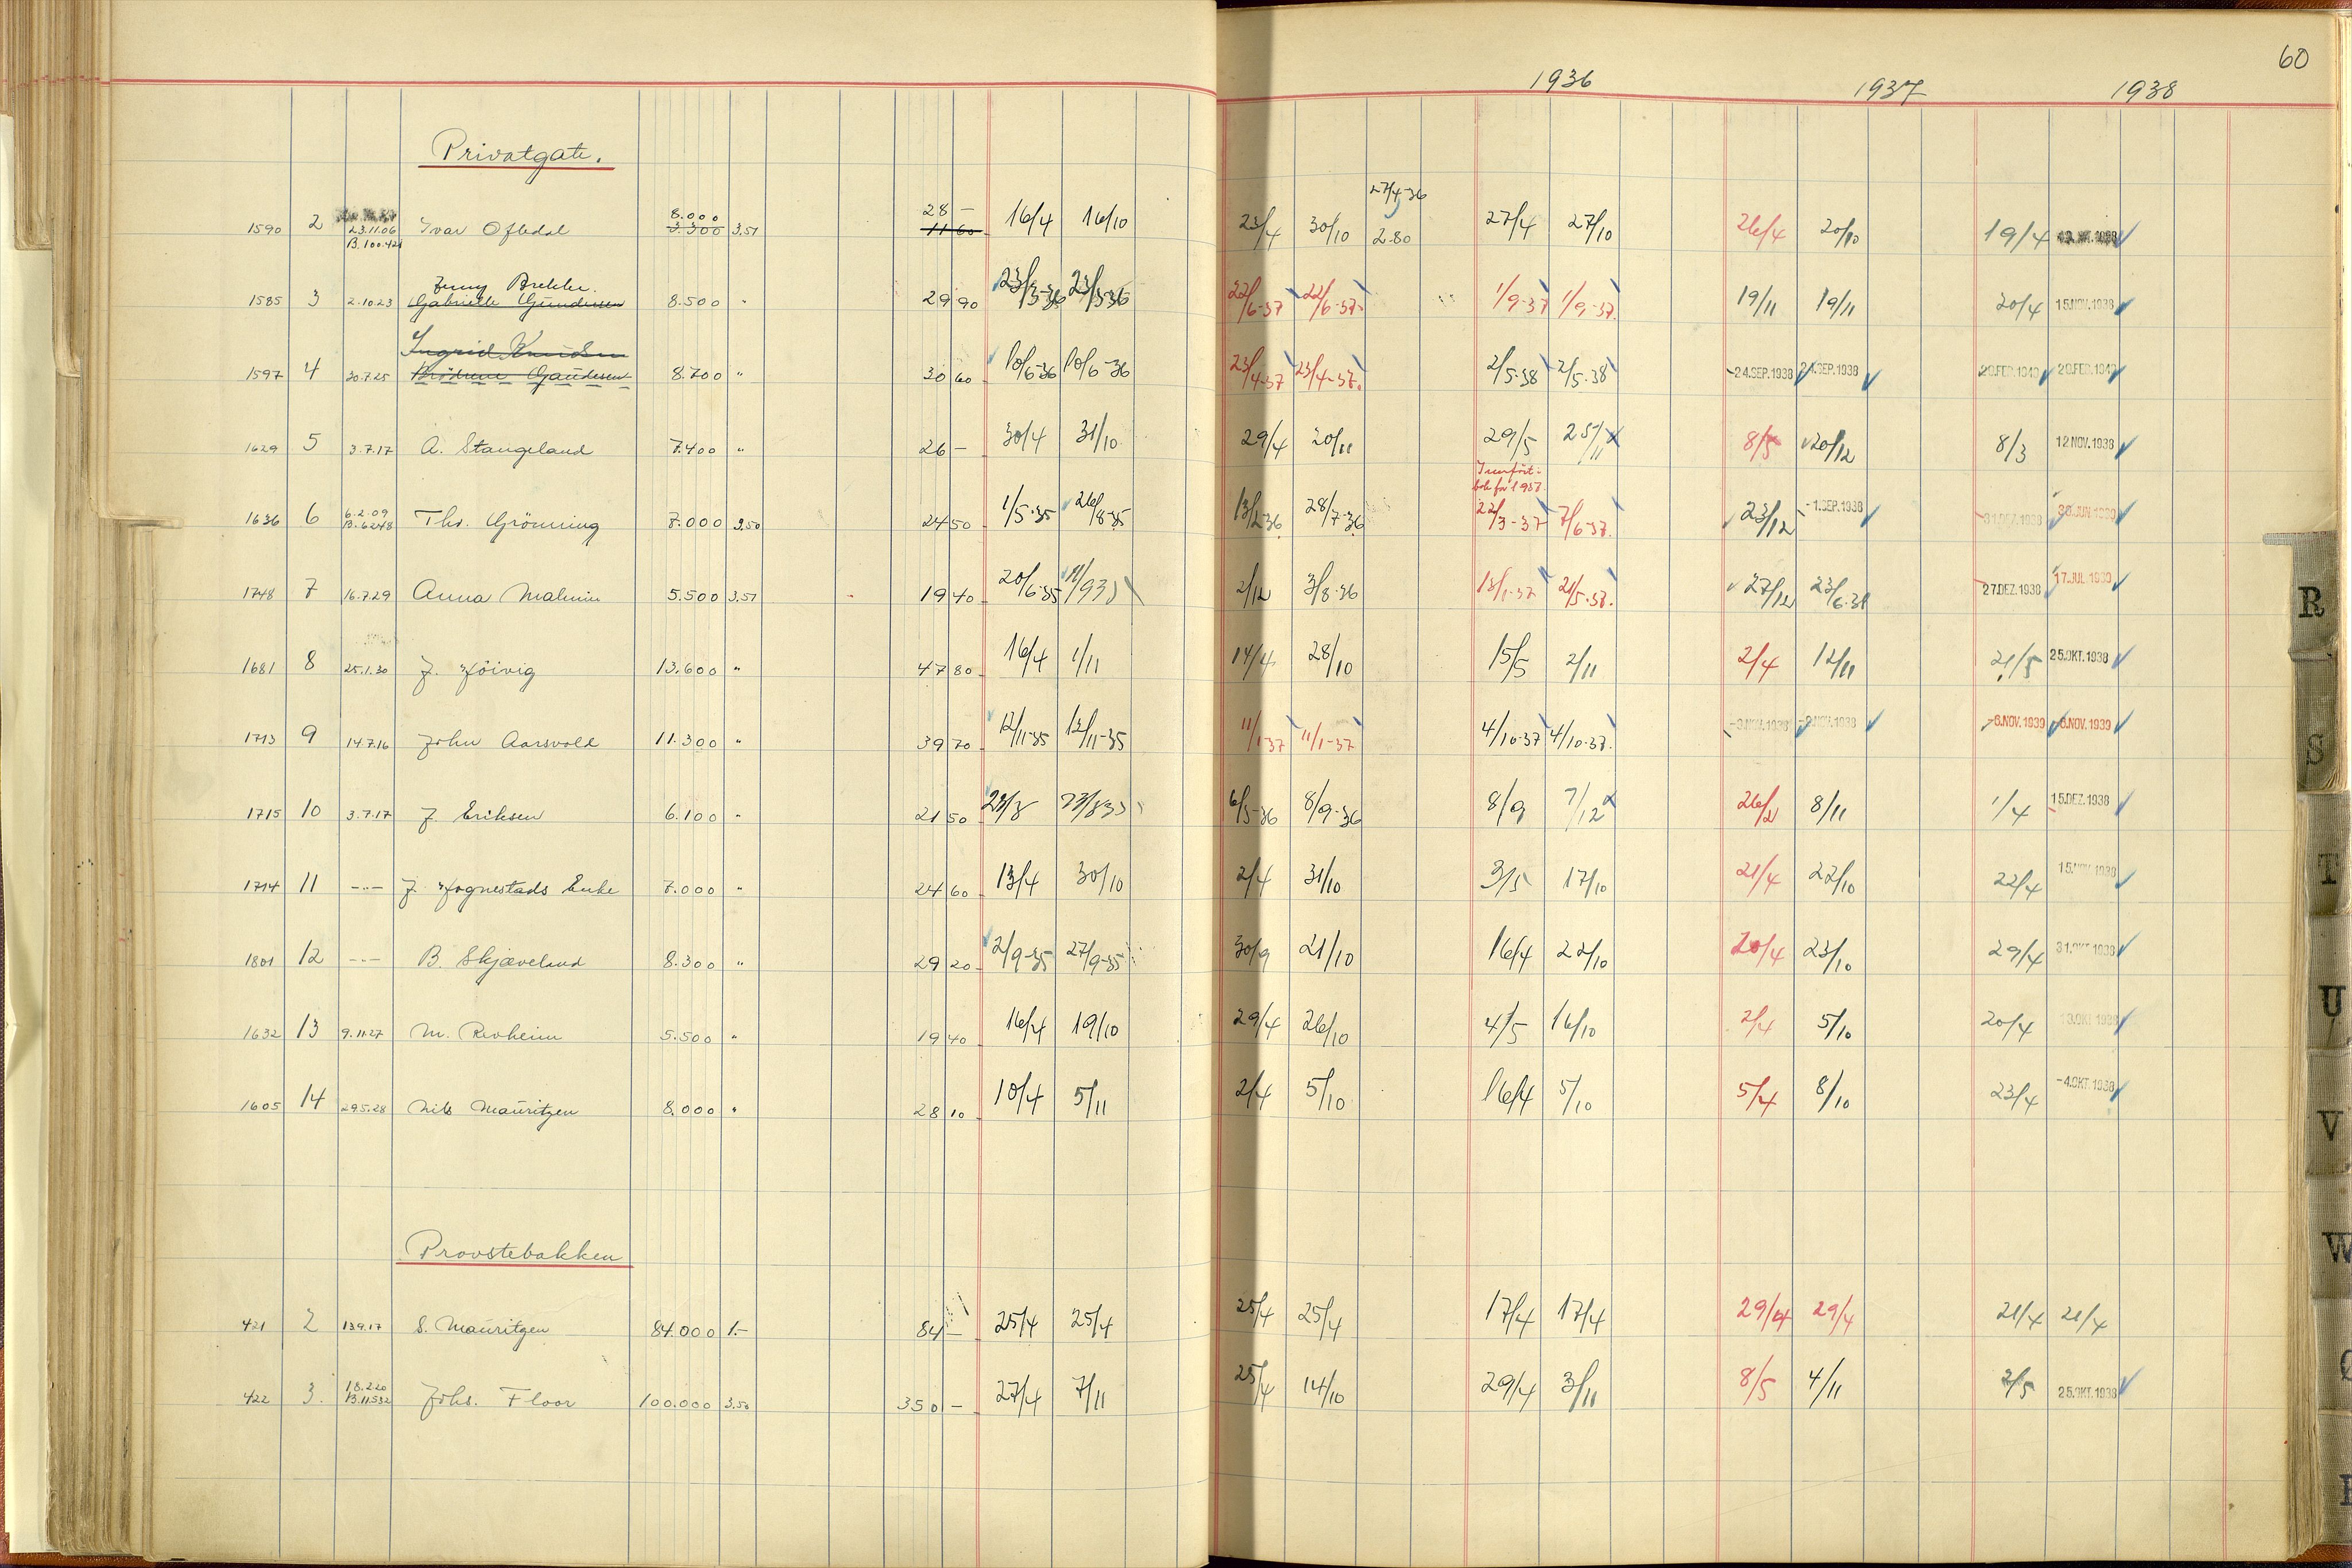 60
1936 1937 1938
Privatgate.
27/4-36
8.000 28 –
1590 2 23.11.06 Ivar Oftedal 3.300 3.51 11 60 16/4 16/10 23/4 30/10 2.80 27/4 27/10 26/4 20/10 19/4
B.100.421
Jenny Brekke.
1585 3 2.10.23 Gabrielle Gundersen 8.500 " 29 90 23/3-36 23/3-36 22/6-37 22/6-37. 1/9-37 1/9-37. 19/11 19/11 20/4 15.NOV.1938
Ingrid Knudsen
1597 4 30.7.25 Brödrene Gaudesen 8.700 " 30 60 10/6-36 10/6-36 23/4-37 23/4-37. 2/5-38 2/5-38 -24.SEP.1938 24.SEP.1938 29.FEB.1940 29.FEB.1940
1629 5 3.7.17 A. Stangeland 7.400 " 26 – 30/4 31/10 29/4 20/11 29/5 25/11 8/5 20/12 8/3 12 NOV.1938
bok for 1937
1636 6 6.2.09 Ths. Grönning 7.000 3.50 24 50 1/5-35 26/8-35 13/2-36 28/7-36 22/3-37 7/6-37. 23/12 -1.SEP.1938 31.DEZ.1938 30.JUN.1939
B.6248
1748 7 16.7.29 Anna Malmin 5.500 3.51 19 40 20/6-35 2/12 3/8-36 21/5-37. 27/12 23/6-38 27.DEZ.1938 17.JUL.1939
1681 8 25.1.30 J. Höivig 13.600 " 47 80 16/4 1/11 14/4 28/10 15/5 2/11 2/4 12/11 21/5 25.OKT.1938
1713 9 14.7.16 John Aarsvold 11.300 " 39 70 12/11-35 12/11-35 11/1-37 11/1-37 4/10-37 4/10-37. -3.NOV.1938 -3.NOV.1938 -6.NOV.1939 -6.NOV.1939
1715 10 3.7.17 J. Eriksen 6.100 " 21 50 6/5-36 8/9-36 8/9 7/12 26/2 8/11 1/4 15.DEZ.1938
1714 11 -"- J. Hognestads Enke 7.000 " 24 60 13/4 30/10 2/4 31/10 3/5 17/10 21/4 22/10 22/4 15.NOV.1938
1801 12 -"- B. Skjæveland 8.300 " 29 20 2/9-35 27/9-35 30/9 21/10 16/4 22/10 20/4 23/10 29/4 31.OKT.1938
1632 13 9.11.27 M. Revheim 5.500 " 19 40 16/4 19/10 29/4 26/10 4/5 16/10 2/4 5/10 20/4 13.OKT.1938
1605 14 29.5.28 Nils Mauritzen 8.000 " 28 10 10/4 5/11 2/4 5/10 16/4 5/10 5/4 8/10 23/4 -4.OKT.1938
Provstebakken
421 2 13.9.17 S. Mauritzen 84.000 1.– 84 – 25/4 25/4 25/4 25/4 17/4 17/4 29/4 29/4 21/4 21/4
422 3. 18.2.20 Johs. Floor 100.000 3.50 350 – 27/4 7/11 25/4 14/10 29/4 3/11 8/5 4/11 2/5 25.OKT.1938
B.11532
R
S
T
U
V
W